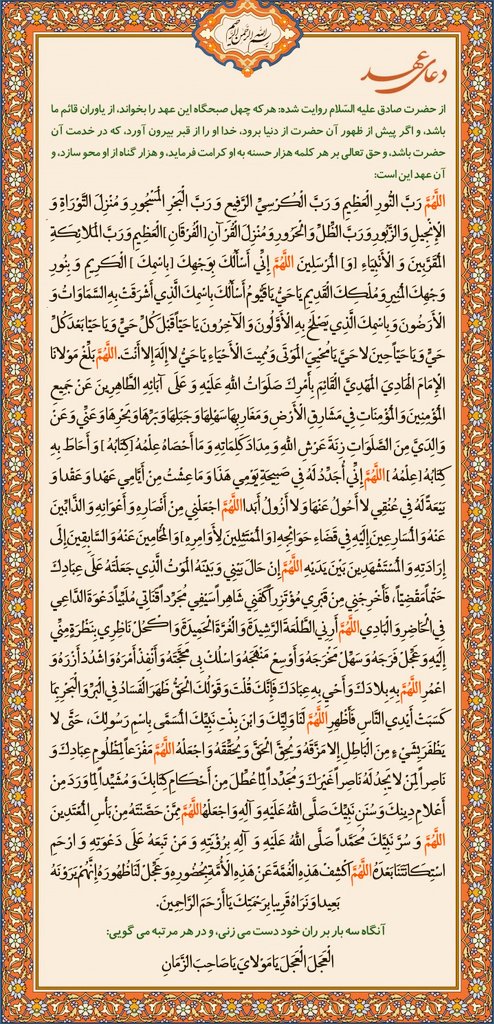 بسم الله الرحمن الرحیم
دعای عهد
از حضرت صادق علیه السّلام روایت شده: هرکه چهل صبحگاه این عهد را بخواند، از یاوران قائم ما
باشد، و اگر پیش از ظهور آن حضرت از دنیا برود، خدا او را از قبر بیرون آورد، که در خدمت آن
حضرت باشد، و حق تعالی بر هر کلمه هزار حسنه به او کرامت فرماید، و هزار گناه از او محو سازد، و
آن عهد این است:
اللَّهُمَّ رَبَّ النُّورِ الْعَظِيمِ وَ رَبَّ الْكُرْسِيِّ الرَّفِيعِ وَ رَبَّ الْبَحْرِ الْمَسْجُورِ وَ مُنْزِلَ التَّوْرَاةِ وَ
الْإِنْجِيلِ وَ الزَّبُورِ وَ رَبَّ الظِّلِّ وَ الْحَرُورِ وَ مُنْزِلَ الْقُرْآنِ [الْفُرْقَانِ] الْعَظِيمِ وَ رَبَّ الْمَلائِكَةِ
الْمُقَرَّبِينَ وَ الْأَنْبِيَاءِ [وَ] الْمُرْسَلِينَ اللَّهُمَّ إِنِّي أَسْأَلُكَ بِوَجْهِكَ [بِاسْمِكَ] الْكَرِيمِ وَ بِنُورِ
وَجْهِكَ الْمُنِيرِ وَ مُلْكِكَ الْقَدِيمِ يَا حَيُّ يَا قَيُّومُ أَسْأَلُكَ بِاسْمِكَ الَّذِي أَشْرَقَتْ بِهِ السَّمَاوَاتُ وَ
الْأَرَضُونَ وَ بِاسْمِكَ الَّذِي يَصْلَحُ بِهِ الْأَوَّلُونَ وَ الْآخِرُونَ يَا حَيّاً قَبْلَ كُلِّ حَيٍّ وَ يَا حَيّاً بَعْدَ كُلِّ
حَيٍّ وَ يَا حَيّاً حِينَ لا حَيَّ يَا مُحْيِيَ الْمَوْتَى وَ مُمِيتَ الْأَحْيَاءِ يَا حَيُّ لا إِلَهَ إِلا أَنْتَ. اللَّهُمَّ بَلِّغْ مَوْلانَا
الْإِمَامَ الْهَادِيَ الْمَهْدِيَّ الْقَائِمَ بِأَمْرِكَ صَلَوَاتُ اللهِ عَلَيْهِ وَ عَلَى آبَائِهِ الطَّاهِرِينَ عَنْ جَمِيعِ
الْمُؤْمِنِينَ وَ الْمُؤْمِنَاتِ فِي مَشَارِقِ الْأَرْضِ وَ مَغَارِبِهَا سَهْلِهَا وَ جَبَلِهَا وَ بَرِّهَا وَ بَحْرِهَا وَ عَنِّي وَ عَنْ
وَالِدَيَّ مِنَ الصَّلَوَاتِ زِنَةَ عَرْشِ اللهِ وَ مِدَادَ كَلِمَاتِهِ وَ مَا أَحْصَاهُ عِلْمُهُ [كِتَابُهُ] وَ أَحَاطَ بِهِ
كِتَابُهُ [عِلْمُهُ] اللَّهُمَّ إِنِّي أُجَدِّدُ لَهُ فِي صَبِيحَةِ يَوْمِي هَذَا وَ مَا عِشْتُ مِنْ أَيَّامِي عَهْدا وَ عَقْدا وَ
بَيْعَةً لَهُ فِي عُنُقِي لا أَحُولُ عَنْهَا وَ لا أَزُولُ أَبَدا اللَّهُمَّ اجْعَلْنِي مِنْ أَنْصَارِهِ وَ أَعْوَانِهِ وَ الذَّابِّينَ
عَنْهُ وَ الْمُسَارِعِينَ إِلَيْهِ فِي قَضَاءِ حَوَائِجِهِ [وَ الْمُمْتَثِلِينَ لِأَوَامِرِهِ] وَ الْمُحَامِينَ عَنْهُ وَ السَّابِقِينَ إِلَى
إِرَادَتِهِ وَ الْمُسْتَشْهَدِينَ بَيْنَ يَدَيْهِ اللَّهُمَّ إِنْ حَالَ بَيْنِي وَ بَيْنَهُ الْمَوْتُ الَّذِي جَعَلْتَهُ عَلَى عِبَادِكَ
حَتْماً مَقْضِيّاً، فَأَخْرِجْنِي مِنْ قَبْرِي مُؤْتَزِراً كَفَنِي شَاهِراً سَيْفِي مُجَرِّداً قَنَاتِي مُلَبِّياً دَعْوَةَ الدَّاعِي
فِي الْحَاضِرِ وَ الْبَادِي اللَّهُمَّ أَرِنِي الطَّلْعَةَ الرَّشِيدَةَ وَ الْغُرَّةَ الْحَمِيدَةَ وَ اكْحُلْ نَاظِرِي بِنَظْرَةٍ مِنِّي
إِلَيْهِ وَ عَجِّلْ فَرَجَهُ وَ سَهِّلْ مَخْرَجَهُ وَ أَوْسِعْ مَنْهَجَهُ وَ اسْلُكْ بِي مَحَجَّتَهُ وَ أَنْفِذْ أَمْرَهُ وَ اشْدُدْ أَزْرَهُ وَ
اعْمُرِ اللَّهُمَّ بِهِ بِلادَكَ وَ أَحْيِ بِهِ عِبَادَكَ فَإِنَّكَ قُلْتَ وَ قَوْلُكَ الْحَقُّ ظَهَرَ الْفَسَادُ فِي الْبَرِّ وَ الْبَحْرِ بِمَا
كَسَبَتْ أَيْدِي النَّاسِ فَأَظْهِرِ اللَّهُمَّ لَنَا وَلِيَّكَ وَ ابْنَ بِنْتِ نَبِيِّكَ الْمُسَمَّى بِاسْمِ رَسُولِكَ، حَتَّى لا
يَظْفَرَ بِشَيْءٍ مِنَ الْبَاطِلِ إِلا مَزَّقَهُ وَ يُحِقَّ الْحَقَّ وَ يُحَقِّقَهُ وَ اجْعَلْهُ اللَّهُمَّ مَفْزَعاً لِمَظْلُومِ عِبَادِكَ وَ
نَاصِراً لِمَنْ لا يَجِدُ لَهُ نَاصِراً غَيْرَكَ وَ مُجَدِّداً لِمَا عُطِّلَ مِنْ أَحْكَامِ كِتَابِكَ وَ مُشَيِّداً لِمَا وَرَدَ مِنْ
أَعْلامِ دِينِكَ وَ سُنَنِ نَبِيِّكَ صَلَّى اللهُ عَلَيْهِ وَ آلِهِ وَ اجْعَلْهُ اللَّهُمَّ مِمَّنْ حَصَّنْتَهُ مِنْ بَأْسِ الْمُعْتَدِينَ
اللَّهُمَّ وَ سُرَّ نَبِيَّكَ مُحَمَّداً صَلَّى اللهُ عَلَيْهِ وَ آلِهِ بِرُؤْيَتِهِ وَ مَنْ تَبِعَهُ عَلَى دَعْوَتِهِ وَ ارْحَمِ
اسْتِكَانَتَنَا بَعْدَهُ اللَّهُمَّ اكْشِفْ هَذِهِ الْغُمَّةَ عَنْ هَذِهِ الْأُمَّةِ بِحُضُورِهِ وَ عَجِّلْ لَنَا ظُهُورَهُ إِنَّهُمْ يَرَوْنَهُ
بَعِيدا وَ نَرَاهُ قَرِيبا بِرَحْمَتِكَ يَا أَرْحَمَ الرَّاحِمِينَ.
آنگاه سه بار بر ران خود دست می زنی، و در هر مرتبه می گویی:
الْعَجَلَ الْعَجَلَ يَا مَوْلايَ يَا صَاحِبَ الزَّمَانِ